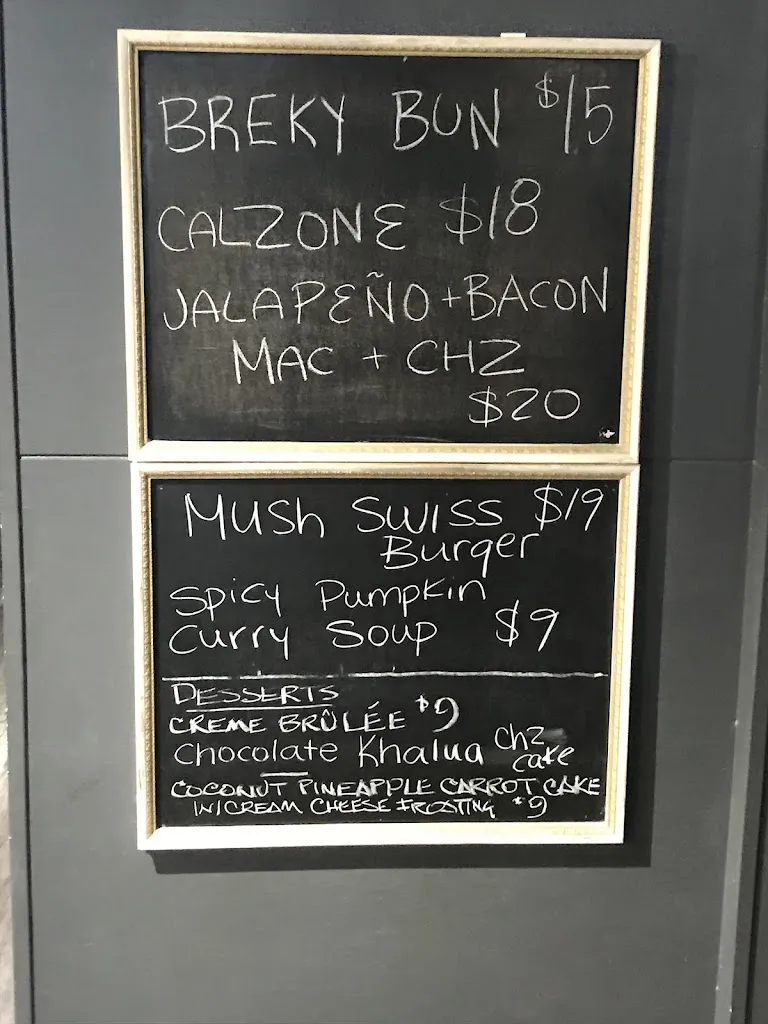 BREKY BUN $15
CALZONE $18
JALAPEÑO + BACON
MAC + CHZ
$20
MUSh SWISS $19
Burger
Spicy Pumpkin
Curry Soup $9
DESSERTS
CREME BRÛLÉE $9
Chocolate Khalua Chz
cake
COCONUT PINEAPPLE CARROT CAKE
W/CREAM CHEESE FROSTING $9